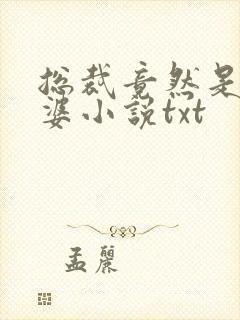 总裁竟然是
婆小说txt
孟丽